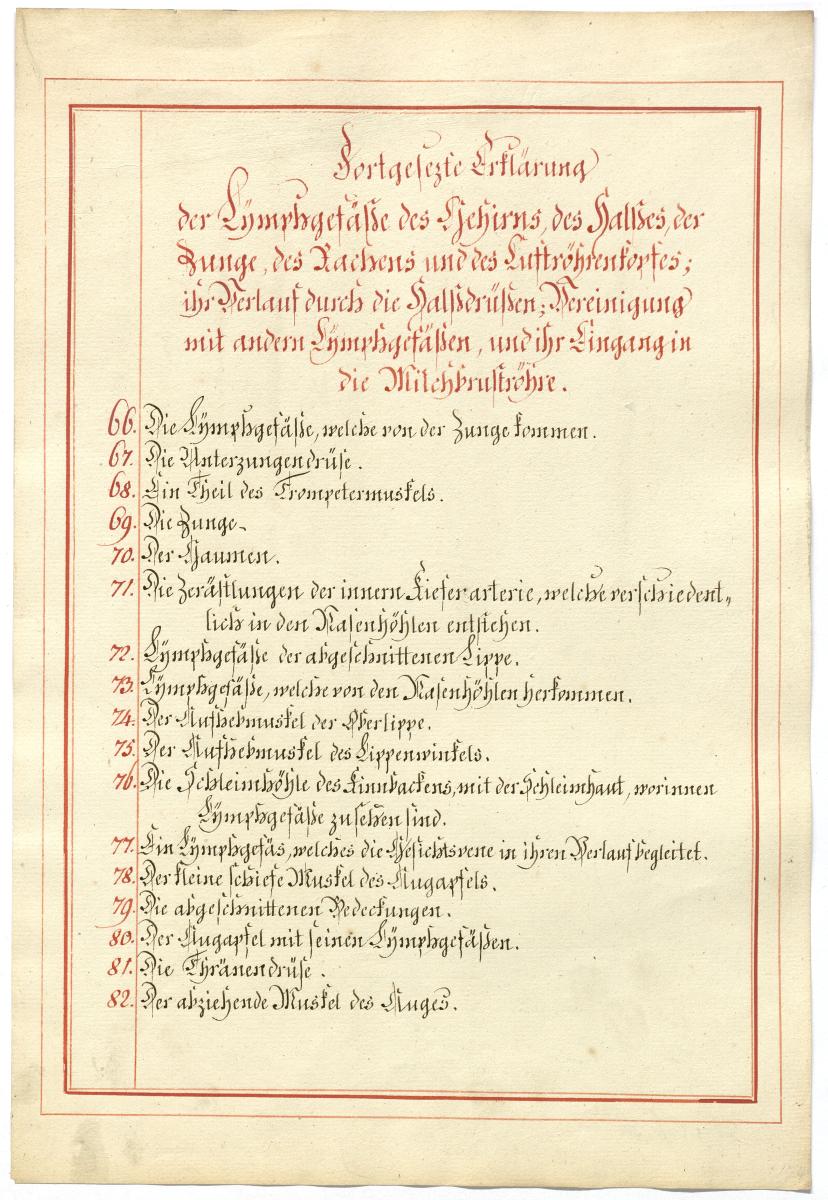 Fortgesezte Erklärung
der Lÿmphgefäße des Gehirns, des Halßes, der
Zunge, des Rachens und des Luftröhrenkopfes;
ihr Verlauf durch die Halßdrüßen; Vereinigung
mit andern Lÿmphgefäßen, und ihr Eingang in
die Milchbruströhre.
66. Die Lÿmphgefäße, welche von der Zunge kommen.
67. Die Unterzungendrüse.
68. Ein Theil des Trompetermuskels.
69. Die Zunge.
70. Der Gaumen.
71. Die Zerästlungen der innern Kieferarterie, welche verschiedent„
lich in den Nasenhöhlen entstehen.
72. Lÿmphgefäße der abgeschnittenen Lippe.
73. Lÿmphgefäße, welche von den Nasenhöhlen herkommen.
74. Der Aufhebmuskel der Oberlippe.
75. Der Aufhebmuskel des Lippenwinkels.
76. Die Schleimhöhle des Kinnbackens, mit der Schleimhaut, worinnen
Lÿmphgefäße zu sehen sind.
77. Ein Lÿmphgefäs, welches die Gesichtsvene in ihren Verlauf begleitet.
78. Der kleine schiefe Muskel des Augapfels.
79. Die abgeschnittenen Bedeckungen.
80. Der Augapfel mit seinen Lÿmphgefäßen.
81. Die Thränendrüse.
82. Der abziehende Muskel des Auges.